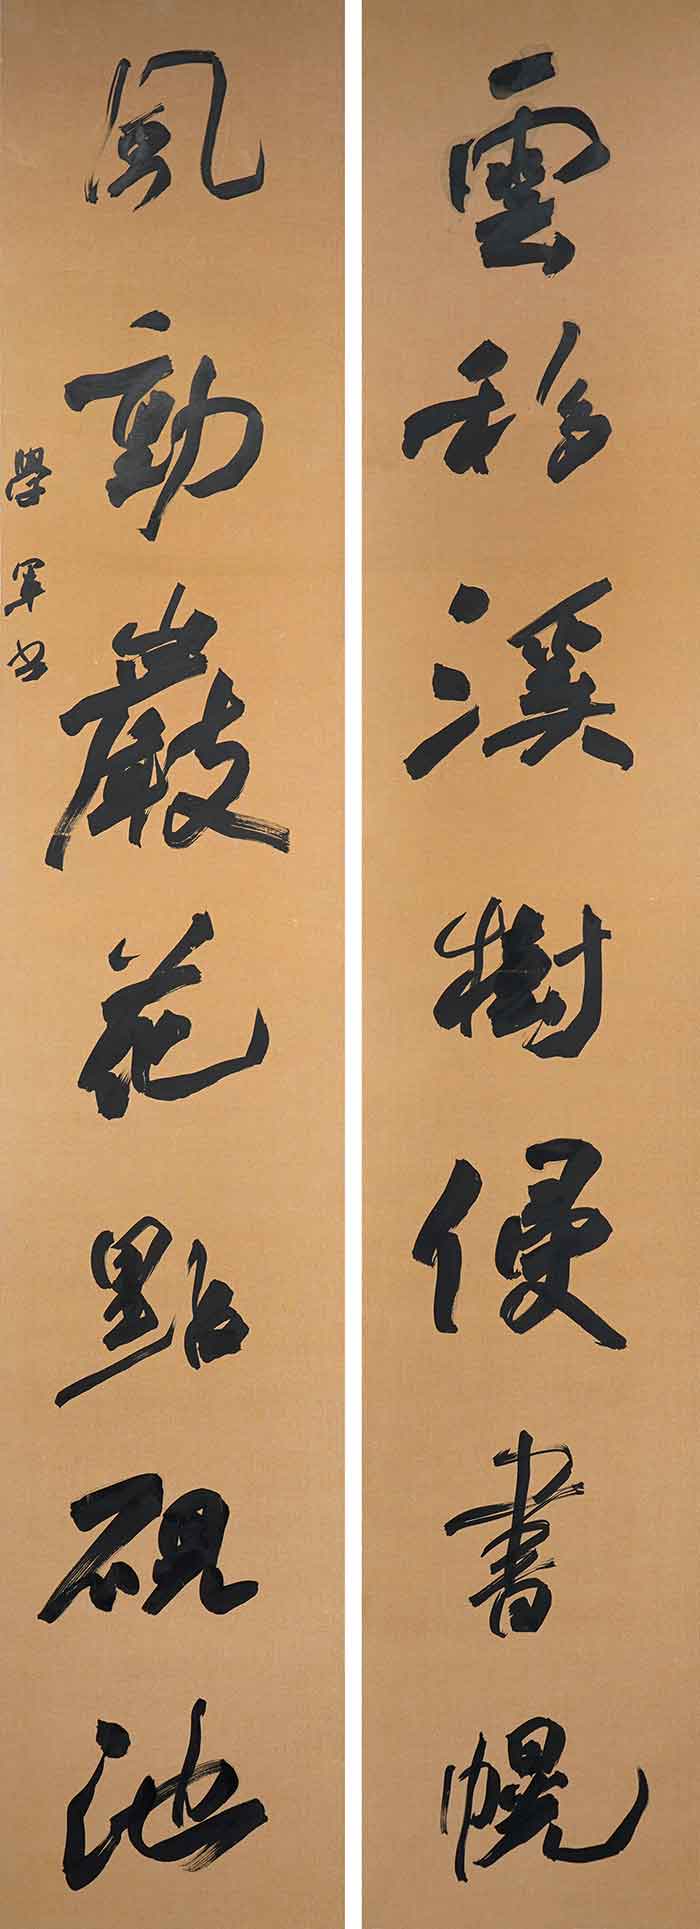 雲移溪樹侵書幌
風動巖花點硯池
學軍书